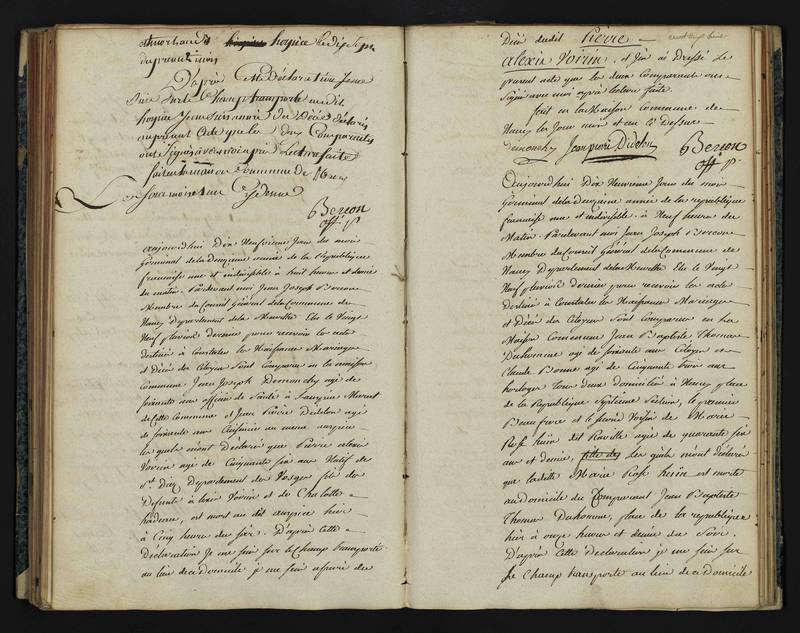 et mort audit hospice le dix sept
du present mois
D'après Cette Déclaration je me
suis sur le Champ transporté audit
hospice Je me suis assuré du Décès déclaré
ont signés avec moi après Lecture faite
fait en la maison Commune de Nancy
Les jour mois et an Cy dessus
Berson
off. p.
aujourd'hui Dix Neufvieme Jour du mois
Germinal de la Deuzieme année de la Republique
francaise une et indivisible à huit heures et demie
du matin. Pardevant moi Jean Joseph Berson
Membre du Conseil Général de la Commune de
Nancy département de la Meurthe Elu le Vingt
Neuf pluviose dernier pour recevoir les acte
destiné à Constater les Naissances Mariages
et Décès des Citoyens Sont Comparus en la maison
Commune Jean Joseph Demonchy agé de
soixante ans officier de Santé à
de Cette Commune et Jean Pierre Didelon agé
de soixante ans au meme auspice
les quels m'ont Déclaré que Pierre alexis
Voirin agé de Cinquante six ans Natif de
St. Diez Département des Vosges fils de
Défunts alexis Voirin et de Charlotte
hadeau, est mort au dit auspice hier
à Cinq heures du soir. D'après Cette
Déclaration Je me suis sur le Champ transporté
au lieu de ce domicile je me suis assuré du
Décès dudit Pierre
alexis Voirin. et j'en ai Dressé le
present acte que les deux Comparants ont
Signé avec moi après lecture faite.
fait en la Maison Commune de
Nancy les Jour mois et an Cÿ Dessus
demonchy Jean pierre Didelon Berson
off. p.
Aujourd'hui Dix Neuvieme Jour du mois
Germinal de la Deuzieme année de la republique
francaise une et indivisible. à Neuf heures du
Matin. Pardevant moi Jean Joseph Berson
Membre du Conseil Général de la Commune de
Nancy Département de la Meurthe Elu le Vingt
Neuf pluviose dernier pour recevoir les acte
Destiné à Constater les Naissances Mariages
et Décès des Citoyens Sont Comparus en la
Maison Commune Jean Baptiste Thomas
Duhomme agé de soixante ans Citoyen et
Claude Bonne agé de Cinquante trois ans
horloger tous deux domiciliés à Nancy place
de la Republique Septieme Section, le premier
Beaufrere et le second Voisin de Marie
Rose huin dit Raville agée de quarante six
ans et demie, fille de les quels m'ont déclaré
que ladite Marie Rose huin est morte
au domicile du Comparant Jean Baptiste
Thomas Duhomme, place de la republique
hier à onze heures et demie du Soir.
D'après Cette déclaration je me suis sur
le Champ transporté au lieu de ce domicile